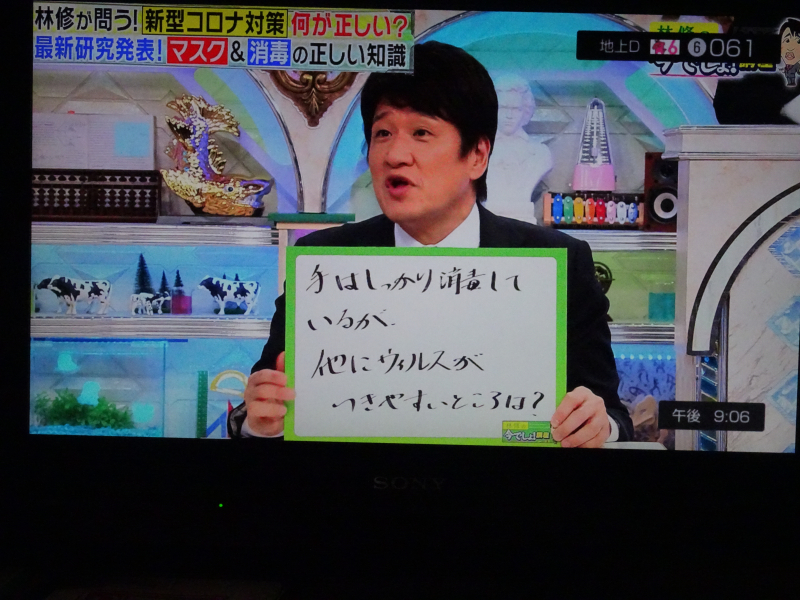 林修が問う!新型コロナ対策 何が正しい?
最新研究発表!マスク&消毒の正しい知識
地上D
6 061
今でしょ!講座
手はしっかり消毒して
いるが、
他にウィルスが
つきやすいところは?
今でしょ!講座
午後 9:06
SONY